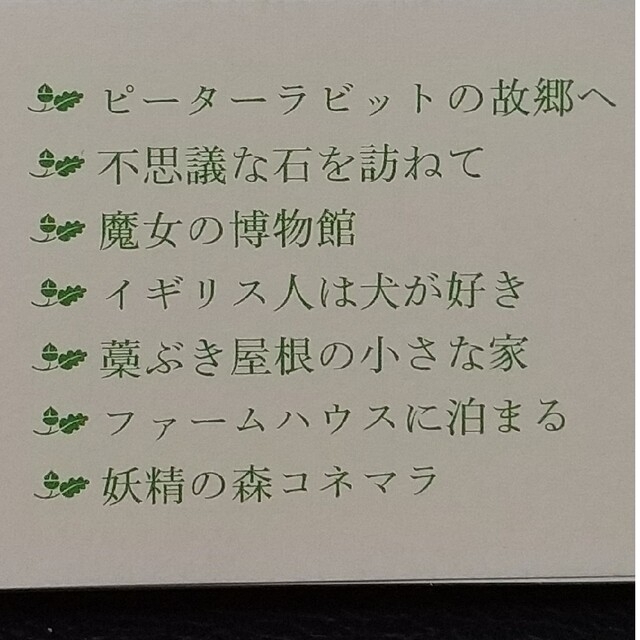 ピーターラビットの故郷へ
不思議な石を訪ねて
魔女の博物館
イギリス人は犬が好き
藁ぶき屋根の小さな家
ファームハウスに泊まる
妖精の森コネマラ